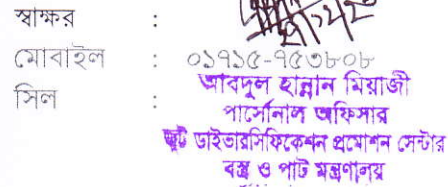 স্বাক্ষর :
মোবাইল : ০১৭১৫-৭৫৩৮০৮
সিল :
আবদুল হান্নান মিয়াজী
পার্সোনাল অফিসার
জুট ডাইভারসিফিকেশন প্রমোশন সেন্টার
বস্ত্র ও পাট মন্ত্রণালয়